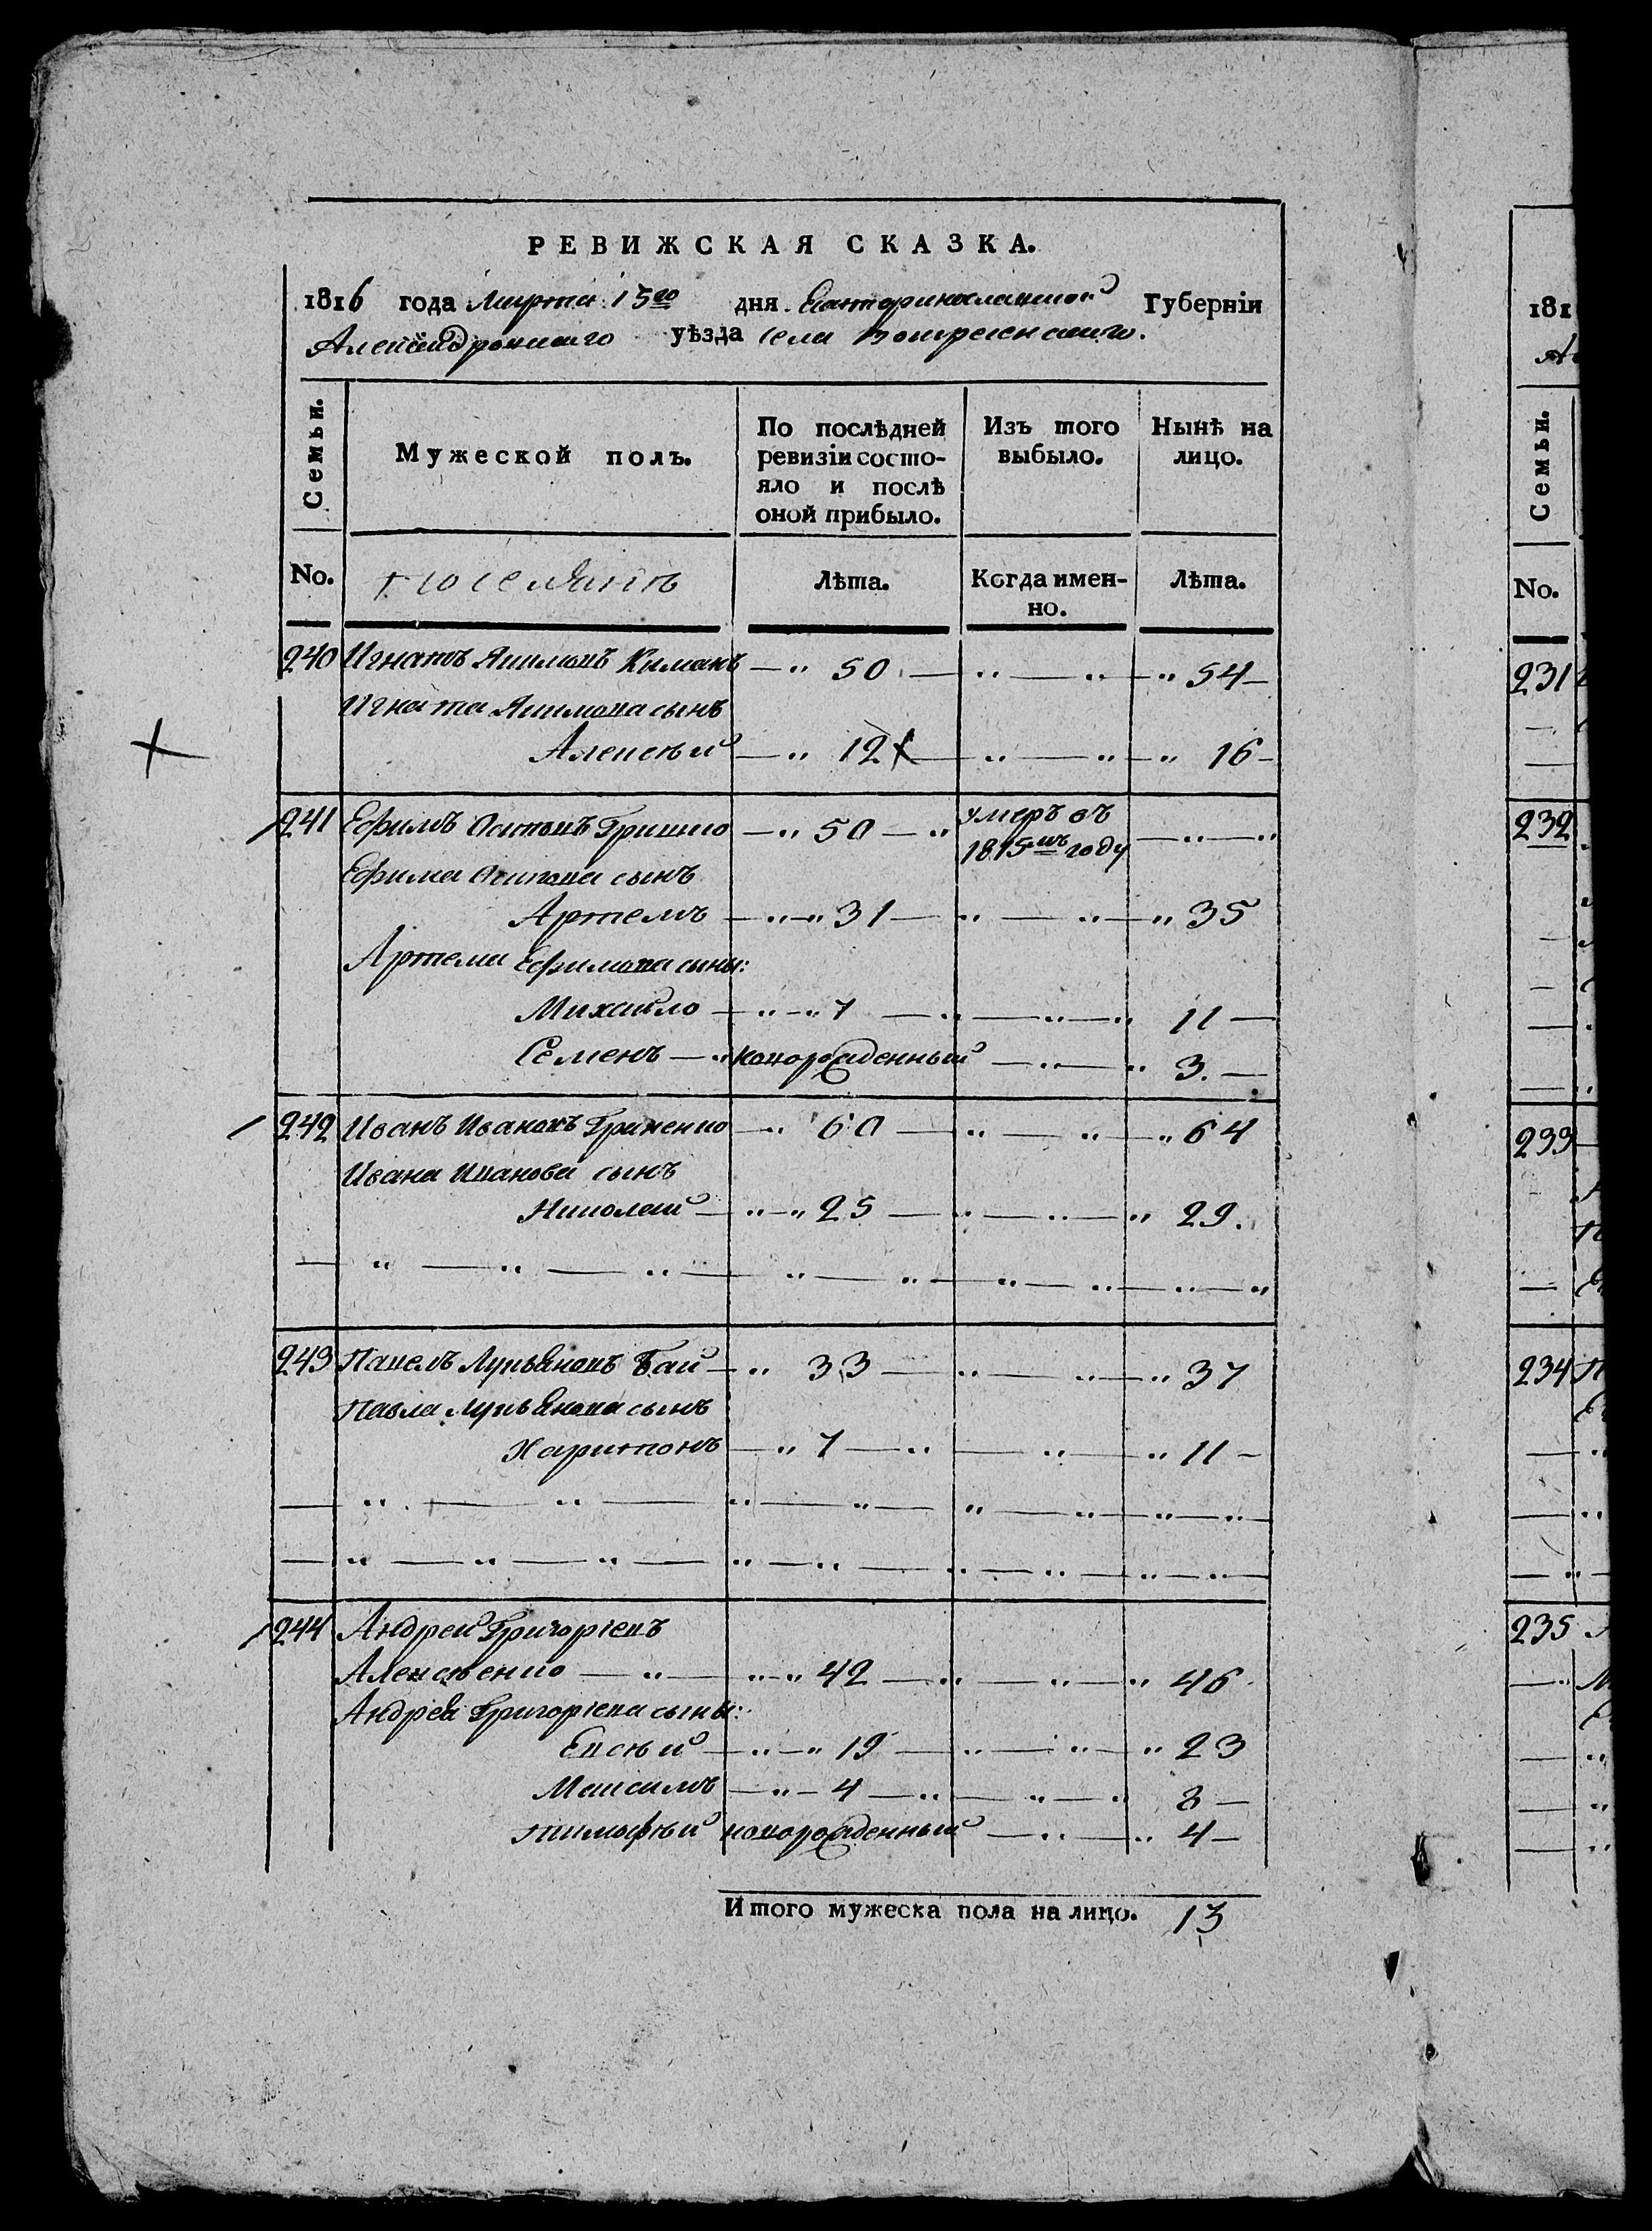 РЕВИЖСКАЯ СКАЗКА.
1816 года Марта 15го дня Екатеринославской Губерніи
Александровскаго уѣзда села Воскресенскаго.
Семьи.
Мужеской полъ.
По послѣдней ревизіи состо-
яло и послѣ
оной прибыло.
Изъ того
выбыло.
Нынѣ на
лицо.
No.
поселянъ
Лѣта.
Когда имен-
но.
Лѣта.
240 Игнатъ Якимовъ Кимакъ — „ 50 — „ — „ — „ 54 —
Игната Якимова сынъ
Алексѣй — „ 12 — „ — „ — „ 16 —
241 Ефимъ Осиповъ Гришко — „ 50 — „ умеръ въ
1815мъ году — „ — „
Ефима Осипова сынъ
Артемъ — „ — „ 31 — „ — „ — „ 35
Артема Ефимова сыны:
Михайло — „ — „ 7 — „ — „ — „ 11 —
Семенъ — „ новорожденный — „ — „ 3. —
242 Иванъ Ивановъ Гриненко — „ 60 — „ — „ — „ 64
Ивана Иванова сынъ
Николай — „ — „ 25 — „ — „ — „ 29.
— „ — „ — „ — „ — „ — „ — „ — „ — „
243 Павелъ Лукьяновъ Бай — „ 33 — „ — „ — „ 37
Павла Лукьянова сынъ
Харитонъ — „ 7 — „ — „ — „ 11 —
— „ — „ — „ — „ — „ — „ — „ — „ —
— „ — „ — „ — „ — „ — „ — „ — „ — „ —
244 Андрей Григоріевъ
Алексѣенко — „ — „ — „ 42 — „ — „ — „ 46
Андрея Григоріева сыны:
Евсѣй — „ — „ 19 — „ — „ — „ 23
Максимъ — „ — 4 — „ — „ — „ 8 —
Тимофѣй новорожденный — „ — „ 4 —
Итого мужеска пола на лицо. 13
181
Семьи.
No.
231
232
233
234
235